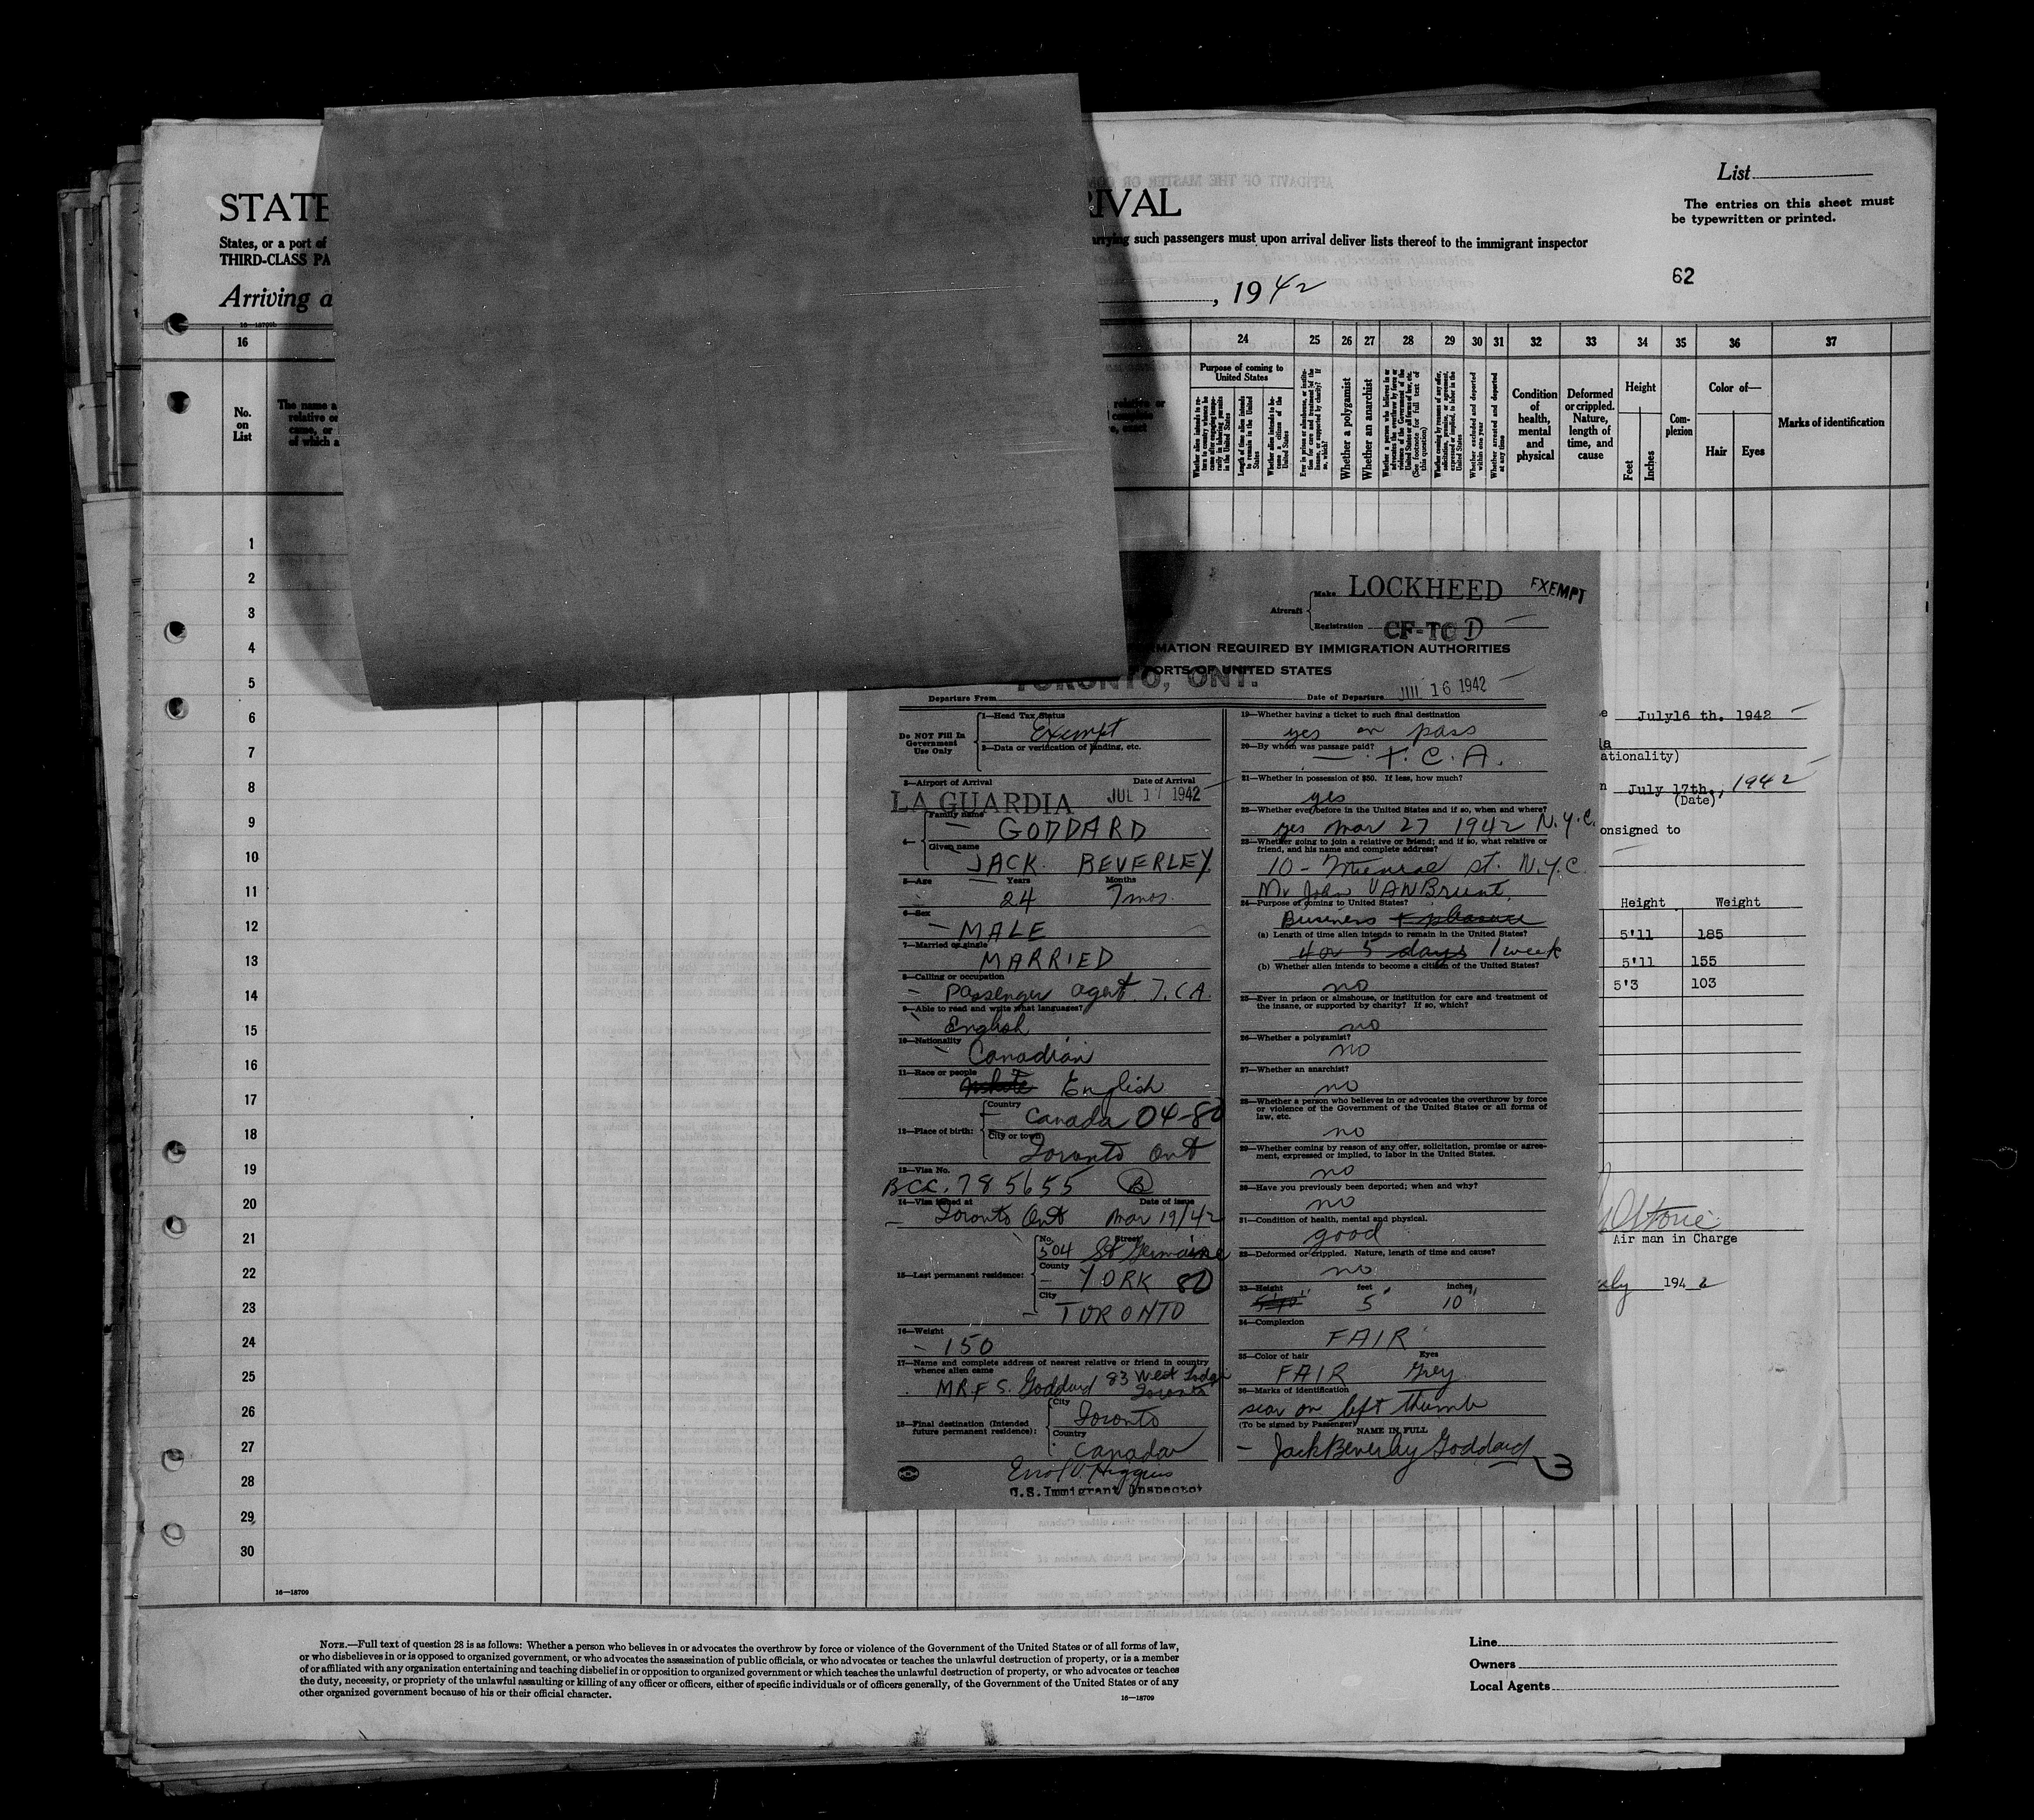 List
The entries on this sheet must
be typewritten or printed.
STATE
RIVAL
States, or a port of
arrying such passengers must upon arrival deliver lists thereof to the immigrant inspector
THIRD-CLASS PA
62
Arriving a
, 1942
16—18709b
16 24 25 26 27 28 29 30 31 32 33 34 35 36 37
No.
on
List
The name a
relative or
came, or
of which a
Purpose of coming to
United States
Length of time alien intends
to remain in the United
States
Whether alien intends to be-
come a citizen of the
United States
Whether a polygamist
Whether an anarchist
Whether excluded and deported
within one year
Whether arrested and deported
at any time
Condition
of
health,
mental
and
physical
Deformed
or crippled.
Nature,
length of
time, and
cause
Height
Feet
Inches
Com-
plexion
Color of—
Hair
Eyes
Marks of identification
1
2
3
4
5
6
7
8
9
10
11
12
13
14
15
16
17
18
19
20
21
22
23
24
25
26
27
28
29
30
16—18709
Aircraft
Make LOCKHEED
EXEMPT
Registration CF-TCD
RMATION REQUIRED BY IMMIGRATION AUTHORITIES
PORTS OF UNITED STATES
Departure From TORONTO, ONT.
Date of Departure JUL 16 1942
Do NOT Fill In
Government
Use Only
1—Head Tax Status
Exempt
2—Data or verification of landing, etc.
3—Airport of Arrival Date of Arrival
LA GUARDIA JUL 17 1942
4—
Family name
GODDARD
Given name
JACK BEVERLEY
5—Age Years Months
24 7 mos.
6—Sex
MALE
7—Married or single
MARRIED
8—Calling or occupation
Passenger agent T.C.A.
9—Able to read and write what languages?
English
10—Nationality
Canadian
11—Race or people
white English
12—Place of birth:
Country
Canada 04-80
City or town
Toronto Ont
13—Visa No.
BCC. 785655 B
14—Visa issued at Date of issue
Toronto Ont Mar 19/42
15—Last permanent residence:
No. Street
504 St Germaine
County
YORK 80
City
TORONTO
16—Weight
150
17—Name and complete address of nearest relative or friend in country
whence alien came
MR F S. Goddard 83 West Lodge
Toronto
18—Final destination (Intended
future permanent residence):
City
Toronto
Country
Canada
Errol V. Higgins
U.S. Immigrant Inspector
19—Whether having a ticket to such final destination
yes on pass
20—By whom was passage paid?
T.C.A.
21—Whether in possession of $50. If less, how much?
yes
22—Whether ever before in the United States and if so, when and where?
yes Mar 27 1942 N.Y.C.
23—Whether going to join a relative or friend; and if so, what relative or
friend, and his name and complete address?
10 - Monroe St. N.Y.C.
Mr John VANBrunt.
24—Purpose of coming to United States?
Business + pleasure
(a) Length of time alien intends to remain in the United States?
4 or 5 days 1 week
(b) Whether alien intends to become a citizen of the United States?
no
25—Ever in prison or almshouse, or institution for care and treatment of
the insane, or supported by charity? If so, which?
no
26—Whether a polygamist?
no
27—Whether an anarchist?
no
28—Whether a person who believes in or advocates the overthrow by force
or violence of the Government of the United States or all forms of
law, etc.
no
29—Whether coming by reason of any offer, solicitation, promise or agree-
ment, expressed or implied, to labor in the United States.
no
30—Have you previously been deported; when and why?
no
31—Condition of health, mental and physical.
good
32—Deformed or crippled. Nature, length of time and cause?
no
33—Height feet inches
5'10" 5' 10"
34—Complexion
FAIR
35—Color of hair Eyes
FAIR Grey
36—Marks of identification
scar on left thumb
(To be signed by Passenger)
NAME IN FULL
Jack Beverley Goddard
3
July16 th. 1942
ationality)
July 17th., 1942
(Date)
onsigned to
Height Weight
5'11 185
5'11 155
5'3 103
Stone
Air man in Charge
July 1942
NOTE.—Full text of question 28 is as follows: Whether a person who believes in or advocates the overthrow by force or violence of the Government of the United States or of all forms of law,
or who disbelieves in or is opposed to organized government, or who advocates the assassination of public officials, or who advocates or teaches the unlawful destruction of property, or is a member
of or affiliated with any organization entertaining and teaching disbelief in or opposition to organized government or which teaches the unlawful destruction of property, or who advocates or teaches
the duty, necessity, or propriety of the unlawful assaulting or killing of any officer or officers, either of specific individuals or of officers generally, of the Government of the United States or of any
other organized government because of his or their official character.
16—18709
Line
Owners
Local Agents